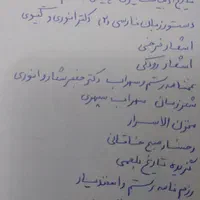 دستور زبان فارسی ۲ دکتر انوری و گیوی
اشعار فرخی
اشعار رودکی
غمنامه رستم و سهراب دکتر جعفر شعار و انوری
شعر زمان سهراب سپهری
مخزن الاسرار
رخسار صبح خاقانی
گزیده تاریخ بلعمی
رزم نامه رستم و اسفندیار